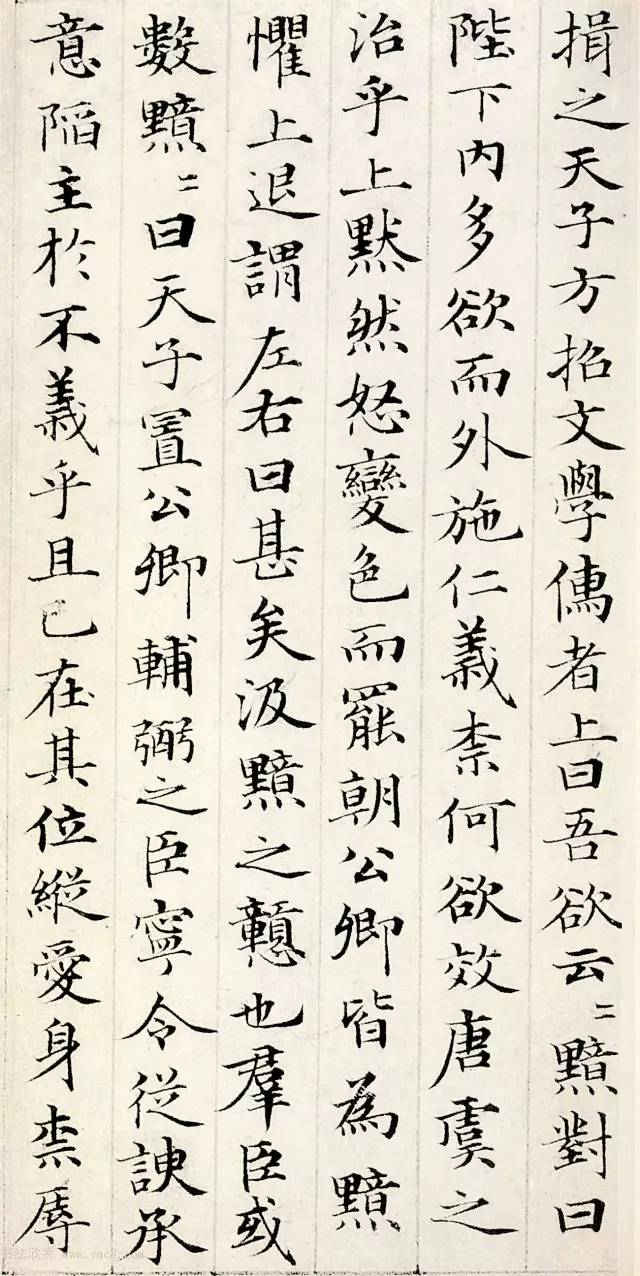 揖之天子方招文學儒者上曰吾欲云〻黯對曰
陛下內多欲而外施仁義柰何欲效唐虞之
治乎上默然怒變色而罷朝公卿皆為黯
懼上退謂左右曰甚矣汲黯之戇也羣臣或
數黯〻曰天子置公卿輔弼之臣寧令從諛承
意陷主於不義乎且已在其位縱愛身柰辱
书法欣赏 www.yac8.com